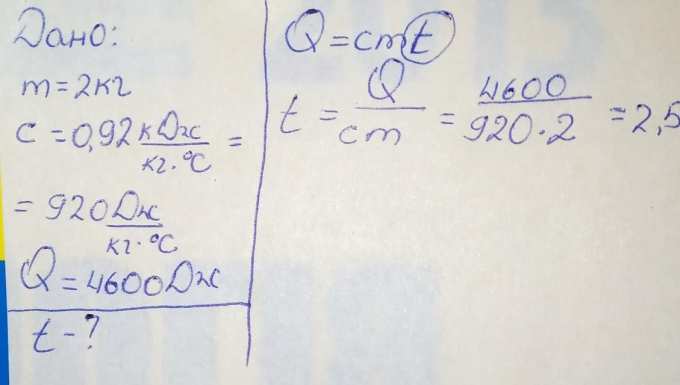 Дано:
m=2кг
c=0,92 кДж/кг·°C =
= 920 Дж/кг·°C
Q=4600Дж
t-?
Q=cmt
t = Q/cm = 4600/920·2 = 2,5